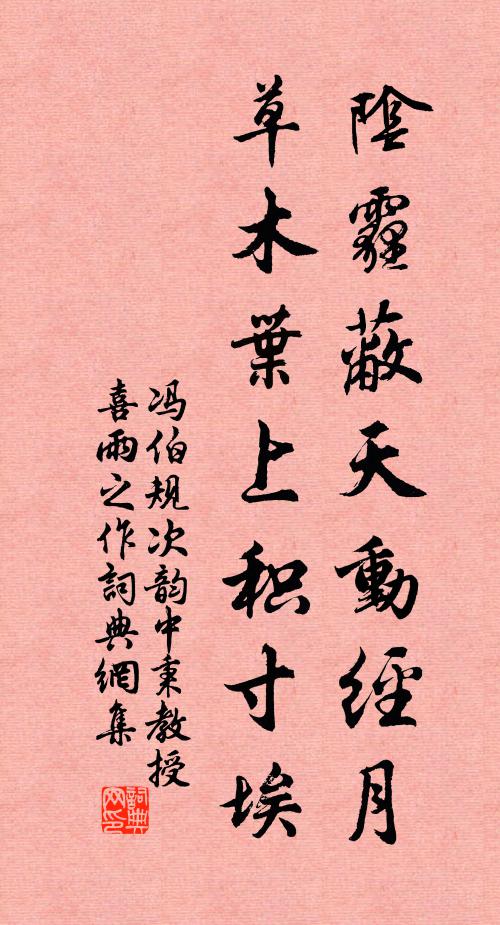 陰霾蔽天動經月
草木葉上积寸埃
冯伯规次韵中秉教授
喜雨之作詞典網集
詞典网印